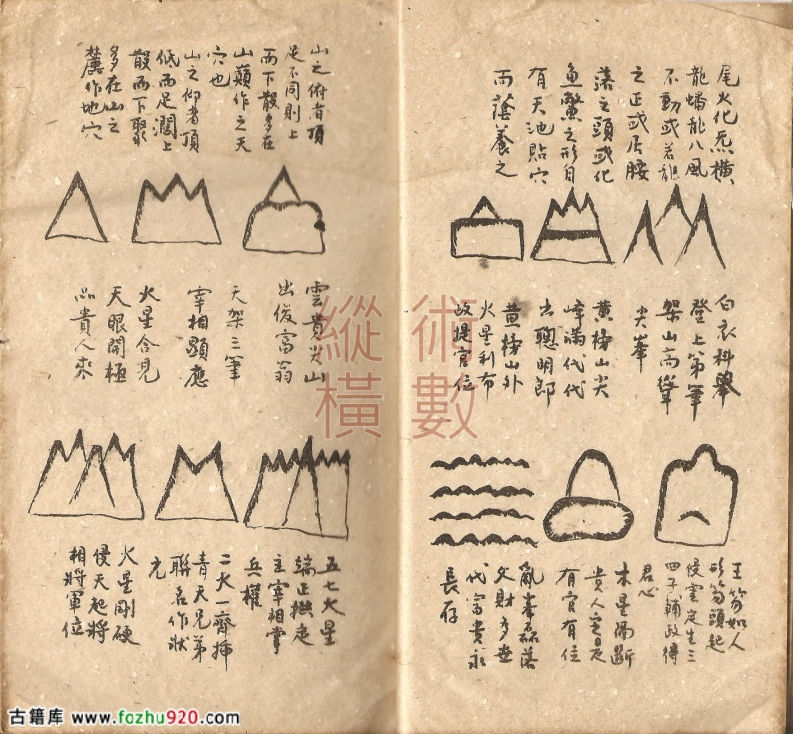 尾火化炁橫
龍蟠龍八風
不動或若龍
之正或居腰
落之頭或化
魚鱉之形自
有天池貼穴
而蔭養之
白衣科舉
登上第筆
架山高聳
尖峯
黃榜山尖
峰滿代代
出聰明郎
黃榜山外
火星利布
政提官位
玉笏如人
形笏頭起
侵雲定生三
四子輔政得
君心
木星陽斷
貴人定是
有官有位
亂峯磊落
文財多世
代富貴永
長存
山之俯者頂
足不同則上
而下散多在
山巔作之天
穴也
山之仰者頂
低而足濶上
散而下聚
多在山之
麓作地穴
雲貴尖山
出俊富翁
天架三筆
宰相顯應
火星合見
天眼開極
品貴人來
五七火星
端正摠是
主宰相掌
兵權
二火一齊揷
青天兄弟
聯名作狀
元
火星剛硬
侵天起將
相將軍位
術數
縱橫
古籍库 www.fozhu920.com